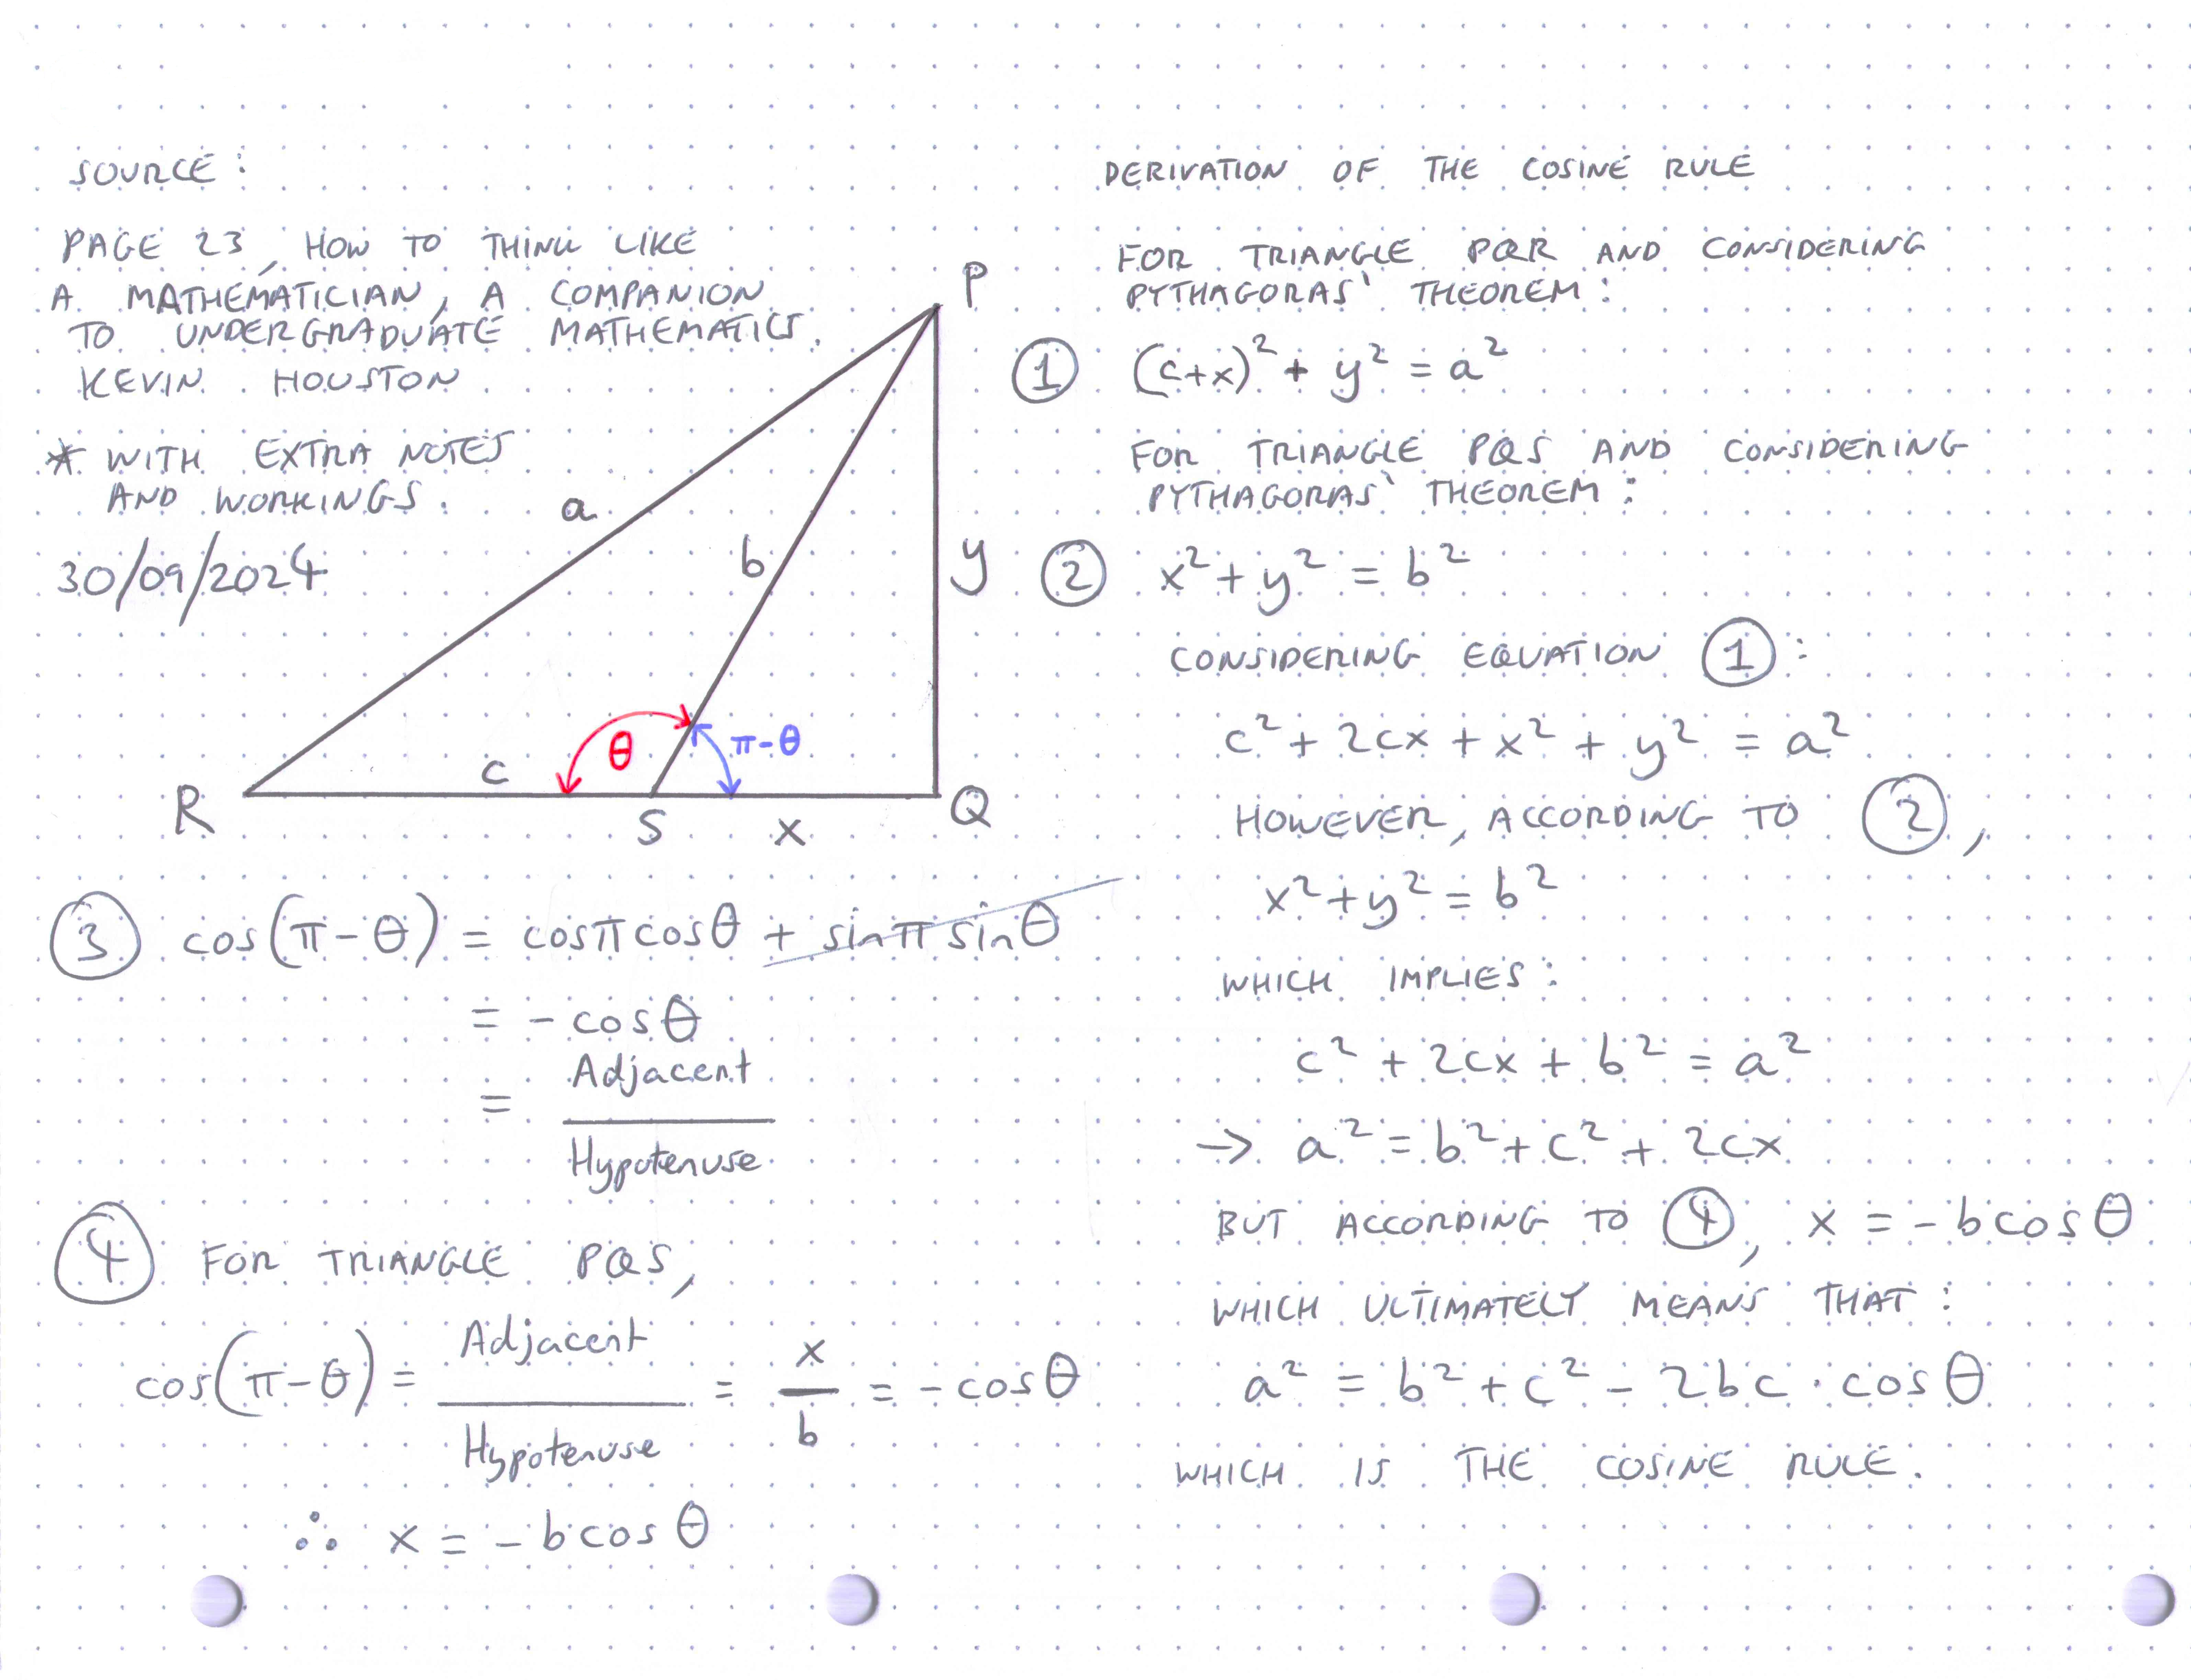 SOURCE:
PAGE 23, HOW TO THINK LIKE
A MATHEMATICIAN, A COMPANION
TO UNDERGRADUATE MATHEMATICS.
KEVIN HOUSTON
* WITH EXTRA NOTES
AND WORKINGS.
30/09/2024
P
a
b
y
θ
π-θ
c
R
S
x
Q
③ cos(π-θ) = cosπcosθ + sinπ sinθ
= -cosθ
= Adjacent
Hypotenuse
④ FOR TRIANGLE PQS,
cos(π-θ) = Adjacent / Hypotenuse = x / b = -cosθ
∴ x = -bcosθ
DERIVATION OF THE COSINE RULE
FOR TRIANGLE PQR AND CONSIDERING
PYTHAGORAS' THEOREM:
① (c+x)² + y² = a²
FOR TRIANGLE PQS AND CONSIDERING
PYTHAGORAS' THEOREM:
② x² + y² = b²
CONSIDERING EQUATION ①:
c² + 2cx + x² + y² = a²
HOWEVER, ACCORDING TO ②,
x² + y² = b²
WHICH IMPLIES:
c² + 2cx + b² = a²
→ a² = b² + c² + 2cx
BUT ACCORDING TO ④, x = -bcosθ
WHICH ULTIMATELY MEANS THAT:
a² = b² + c² - 2bc · cosθ
WHICH IS THE COSINE RULE.